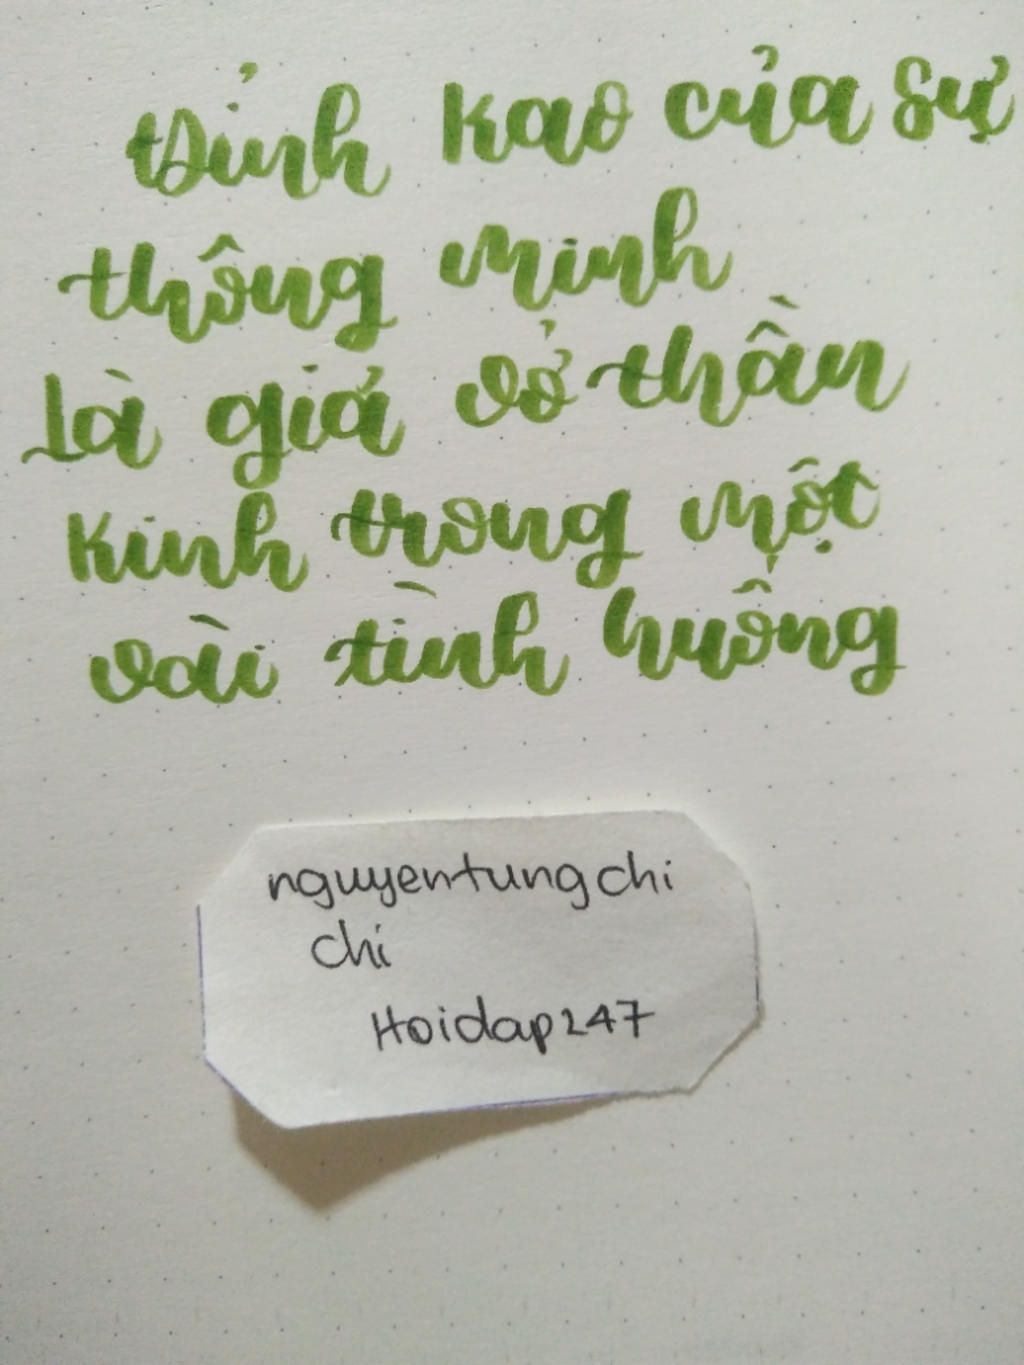 Đỉnh Kao của sự
thông minh
Là giả vờ thần
Kinh trong một
vài tình huống
nguyentungchi
chi
Hoidap247